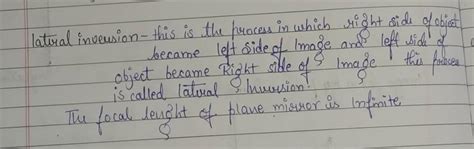 latural inversion - this is the process in which right side of object
became left side of Image and left side of
object became Right side of Image this process
is called latural Inversion.
The focal lenght of plane mirror is infinite